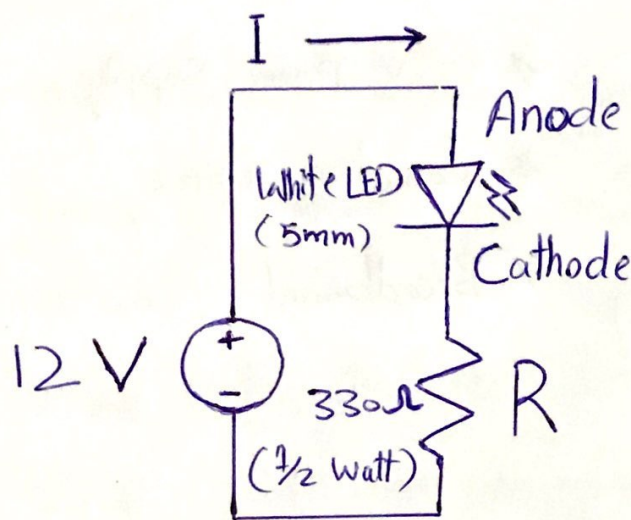 I
Anode
White LED
(5mm)
Cathode
12 V
+
-
330Ω
R
(1/2 Watt)